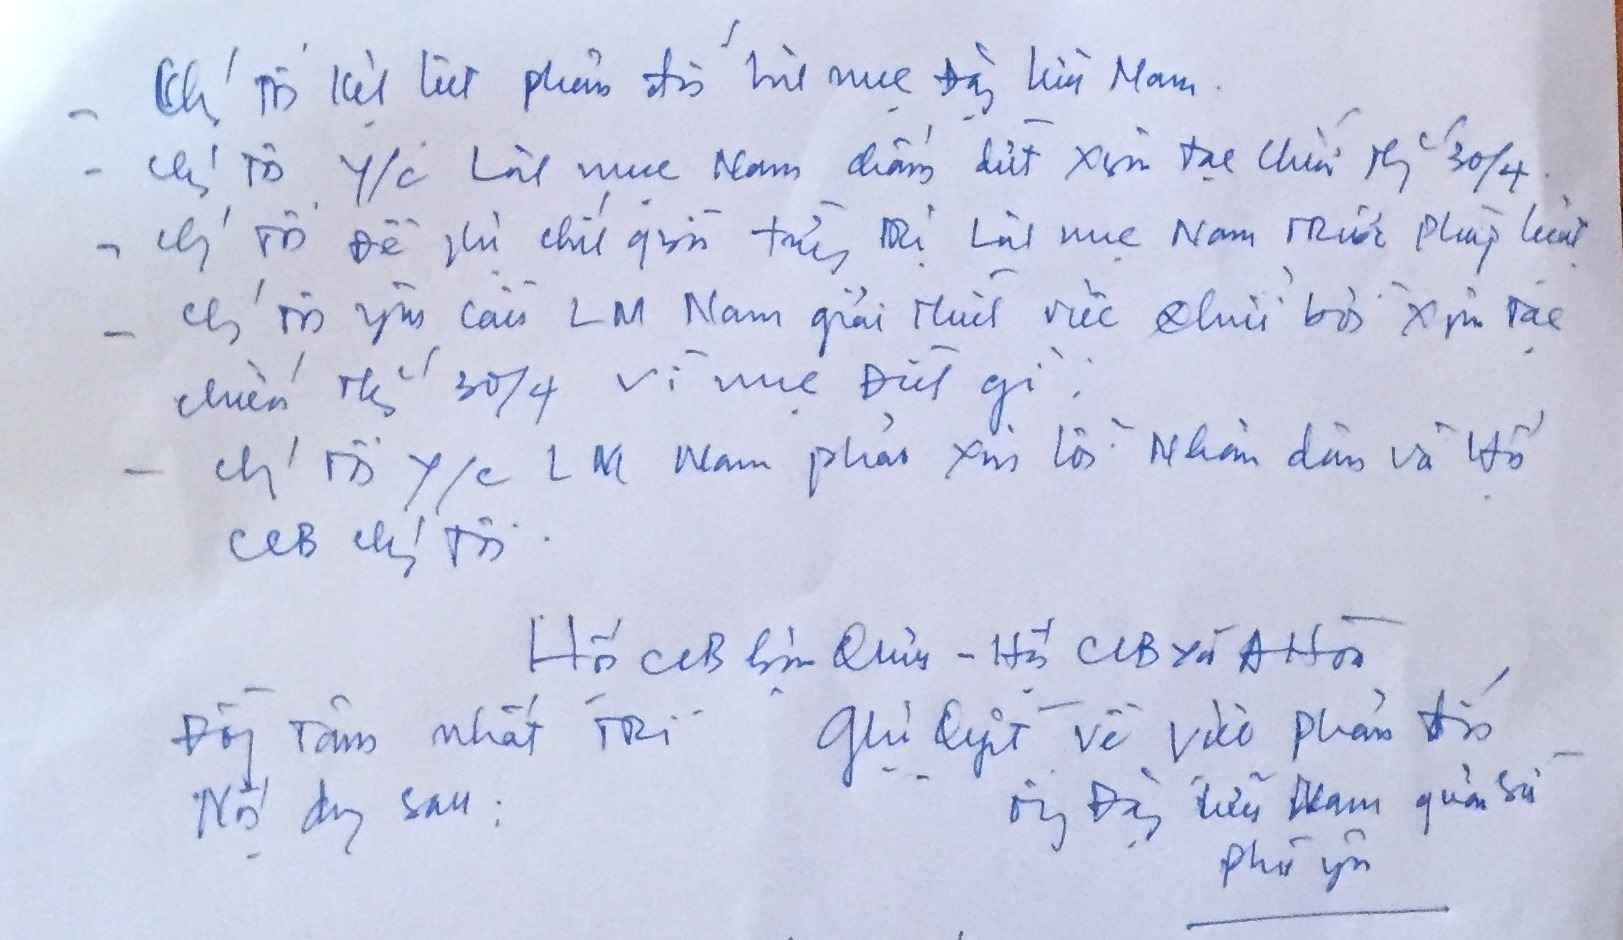 - Chúng tôi kịch liệt phản đối linh mục Đặng Hữu Nam.
- Chúng tôi Y/c Linh mục Nam chấm dứt xuyên tạc chiến thắng 30/4.
- Chúng tôi Đề nghị chính quyền trừng trị Linh mục Nam trước pháp luật
- Chúng tôi yêu cầu LM Nam giải thích việc chuẩn bị xuyên tạc
chiến thắng 30/4 vì mục Đích gì?
- Chúng tôi Y/c LM Nam phải xin lỗi Nhân dân và Hội
CCB chúng tôi.
Hội CCB huyện Quỳnh - Hội CCB xã A Hòa
Đồng tâm nhất trí Nghị Quyết về việc phản đối
Nội dung sau: ông Đặng Hữu Nam quản sứ
phú yên